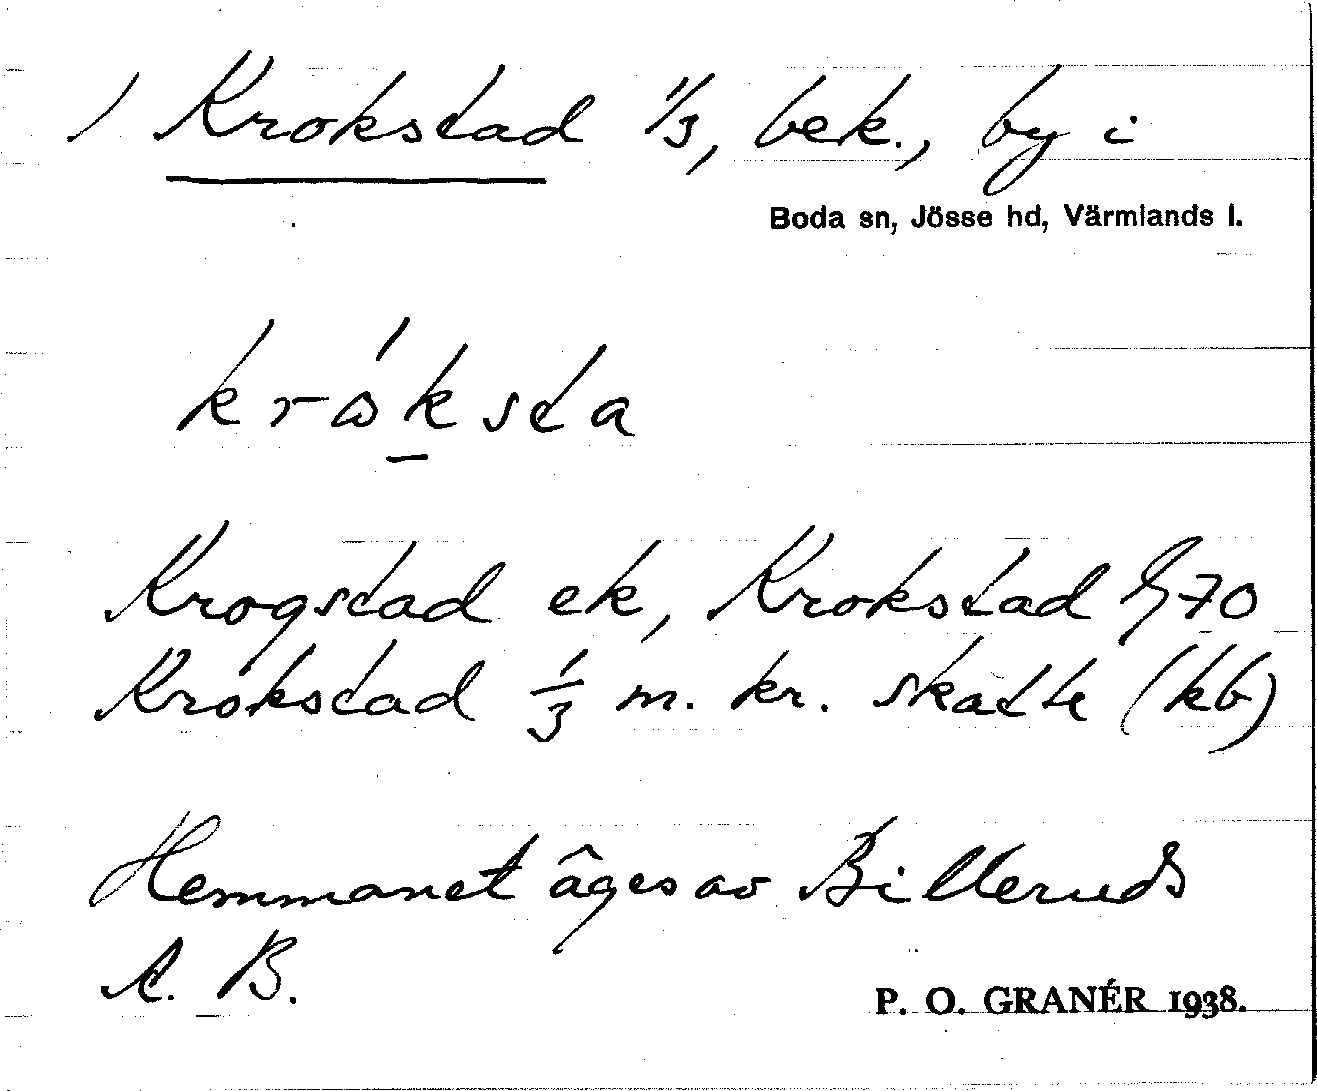 / Krokstad 1/3, bek., by i
Boda sn, Jösse hd, Värmlands l.
kròksta
Krogstad ek, Krokstad 70
Krokstad 1/3 m. kr. skatte (kb)
Hemmanet äges av Billeruds
A. B.
P. O. GRANÉR 1938.